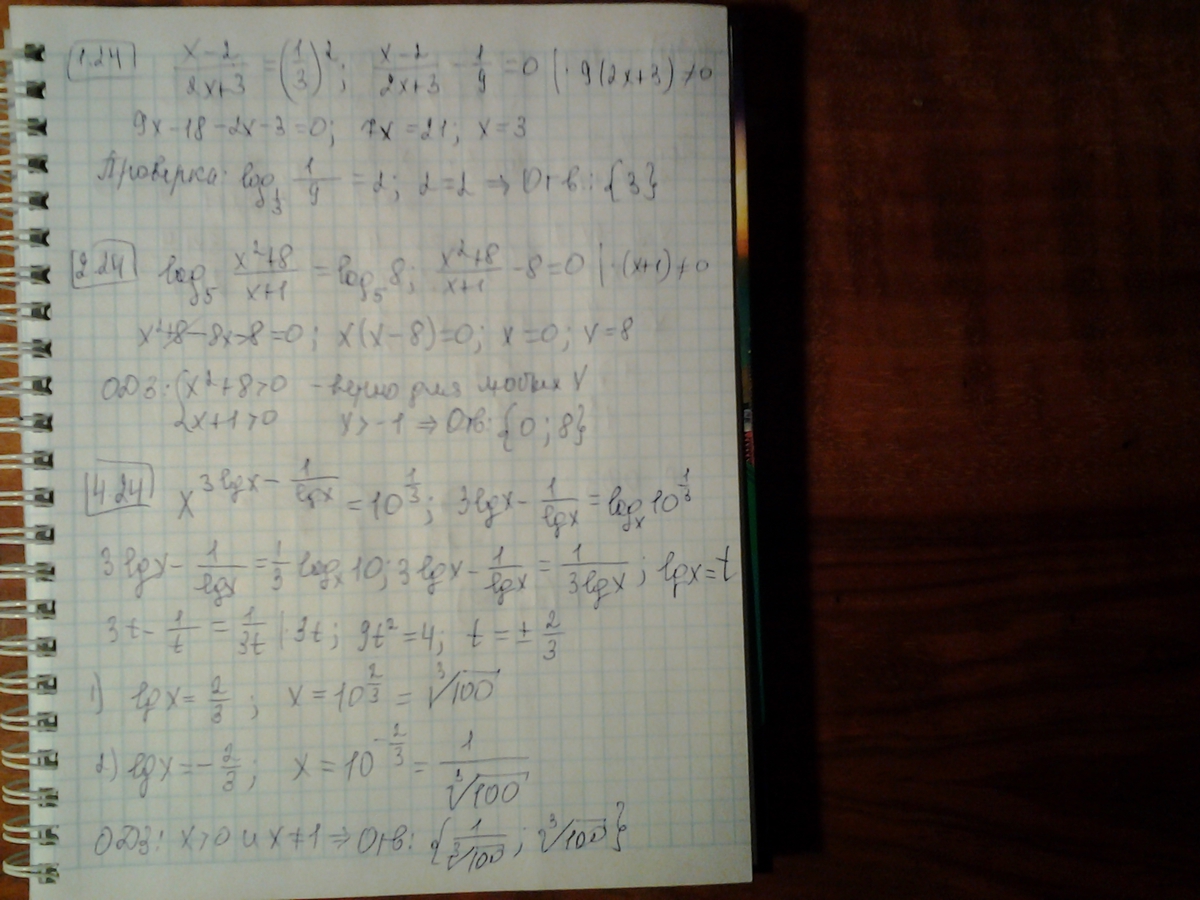 1.24 (x-2)/(2x+3) = (1/3)^2; (x-2)/(2x+3) - 1/9 = 0 | · 9(2x+3) ≠ 0
9x-18-2x-3=0; 7x=21; x=3
Проверка: log_(1/3) 1/9 = 2; 2=2 ⇒ Отв: {3}
2.24 log_5 (x²+8)/(x+1) = log_5 8; (x²+8)/(x+1) - 8 = 0 | · (x+1) ≠ 0
x²+8-8x-8=0; x(x-8)=0; x=0; x=8
ОДЗ: { x²+8>0 - верно для любых x
2x+1>0 x>-1 ⇒ Отв: {0; 8}
4.24 x^(3lgx - 1/lgx) = 10^(1/3); 3lgx - 1/lgx = log_x 10^(1/3)
3lgx - 1/lgx = 1/3 log_x 10; 3lgx - 1/lgx = 1/(3lgx); lgx=t
3t - 1/t = 1/(3t) | · 3t; 9t²=4; t = ± 2/3
1) lgx = 2/3; x = 10^(2/3) = ∛100
2) lgx = -2/3; x = 10^(-2/3) = 1/∛100
ОДЗ: x>0 и x≠1 ⇒ Отв: {1/∛100; ∛100}